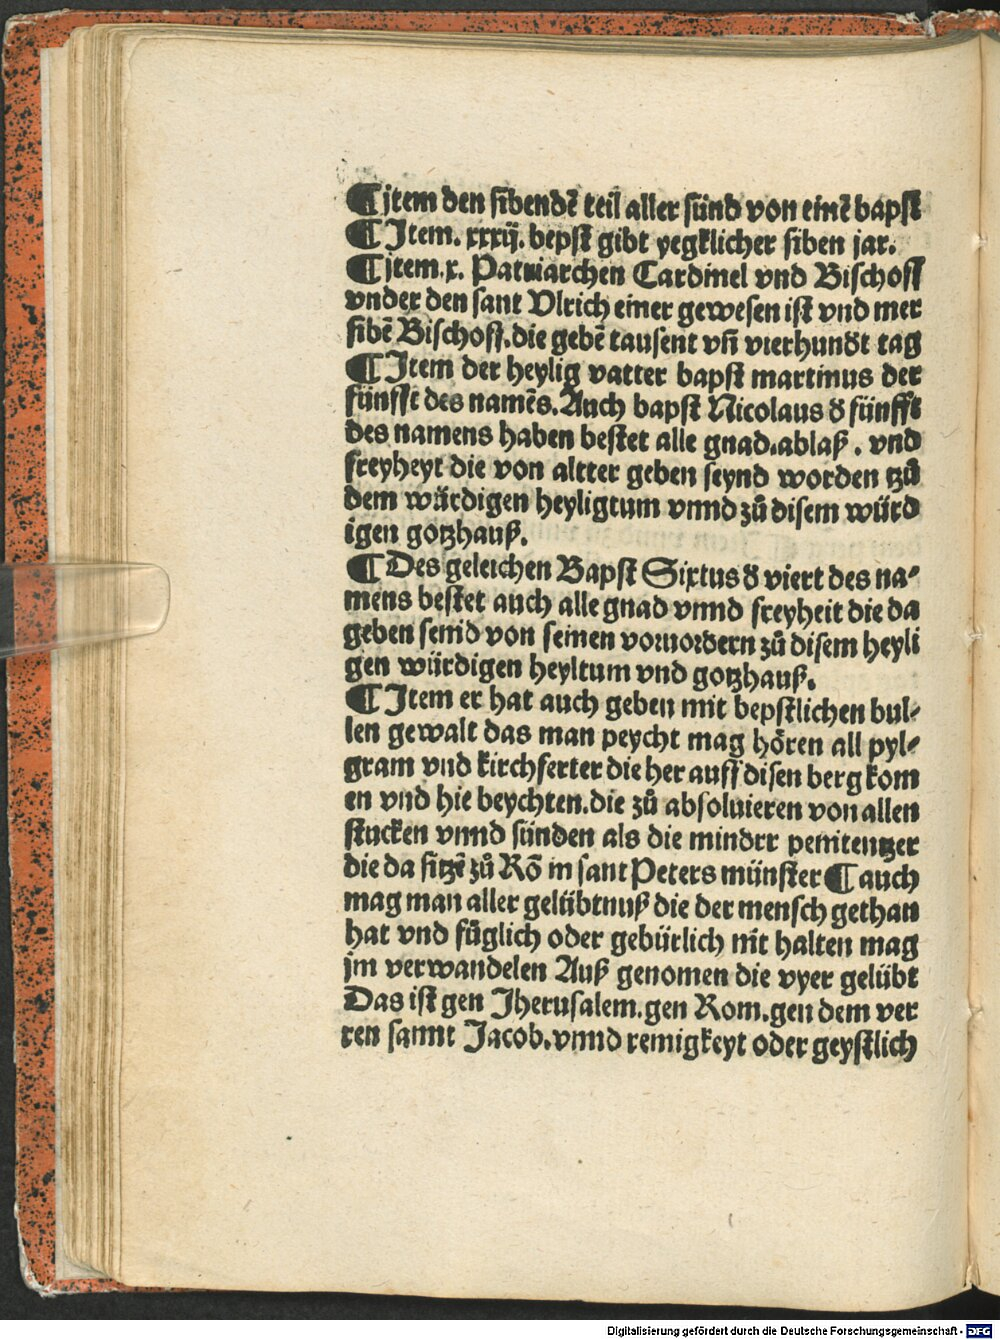 ¶ jtem den sibendē teil aller sünd von einē bapst
¶ Jtem. xxxij. bepst gibt yegklicher siben jar.
¶ jtem .x. Patriarchen Cardinel vnd Bischoff
vnder den sant Vlrich einer gewesen ist vnd mer
sibē Bischoff. die gebē tausent vn̄ vierhundt tag
¶ Jtem der heylig vatter bapst martinus der
fünfft des namēs. Auch bapst Nicolaus d̕ fünfft
des namens haben bestet alle gnad. ablaß. vnd
freyheyt die von altter geben seynd worden tzů
dem würdigen heyligtum vnnd zů disem würd
igen gotzhauß.
¶ Des geleichen Bapst Sixtus d̕ viert des na⸗
mens bestet auch alle gnad vnnd freyheit die da
geben seind von seinen vorvordern zů disem heyli
gen würdigen heyltum vnd gotzhauß.
¶ Jtem er hat auch geben mit bepstlichen bul⸗
len gewalt das man peycht mag hören all pyl⸗
gram vnd kirchferter die her auff disen berg kom
en vnd hie beychten. die zů absoluieren von allen
stucken vnnd sünden als die mindrr penitentzer
die da sitzē zů Rō in sant Peters münster ¶ auch
mag man aller gelübtnuß die der mensch gethan
hat vnd füglich oder gebürlich nit halten mag
jm verwandelen Auß genomen die vyer gelübt
Das ist gen Jherusalem. gen Rom. gen dem ver
ren sannt Jacob. vnnd reinigkeyt oder geystlich
Digitalisierung gefördert durch die Deutsche Forschungsgemeinschaft - DFG